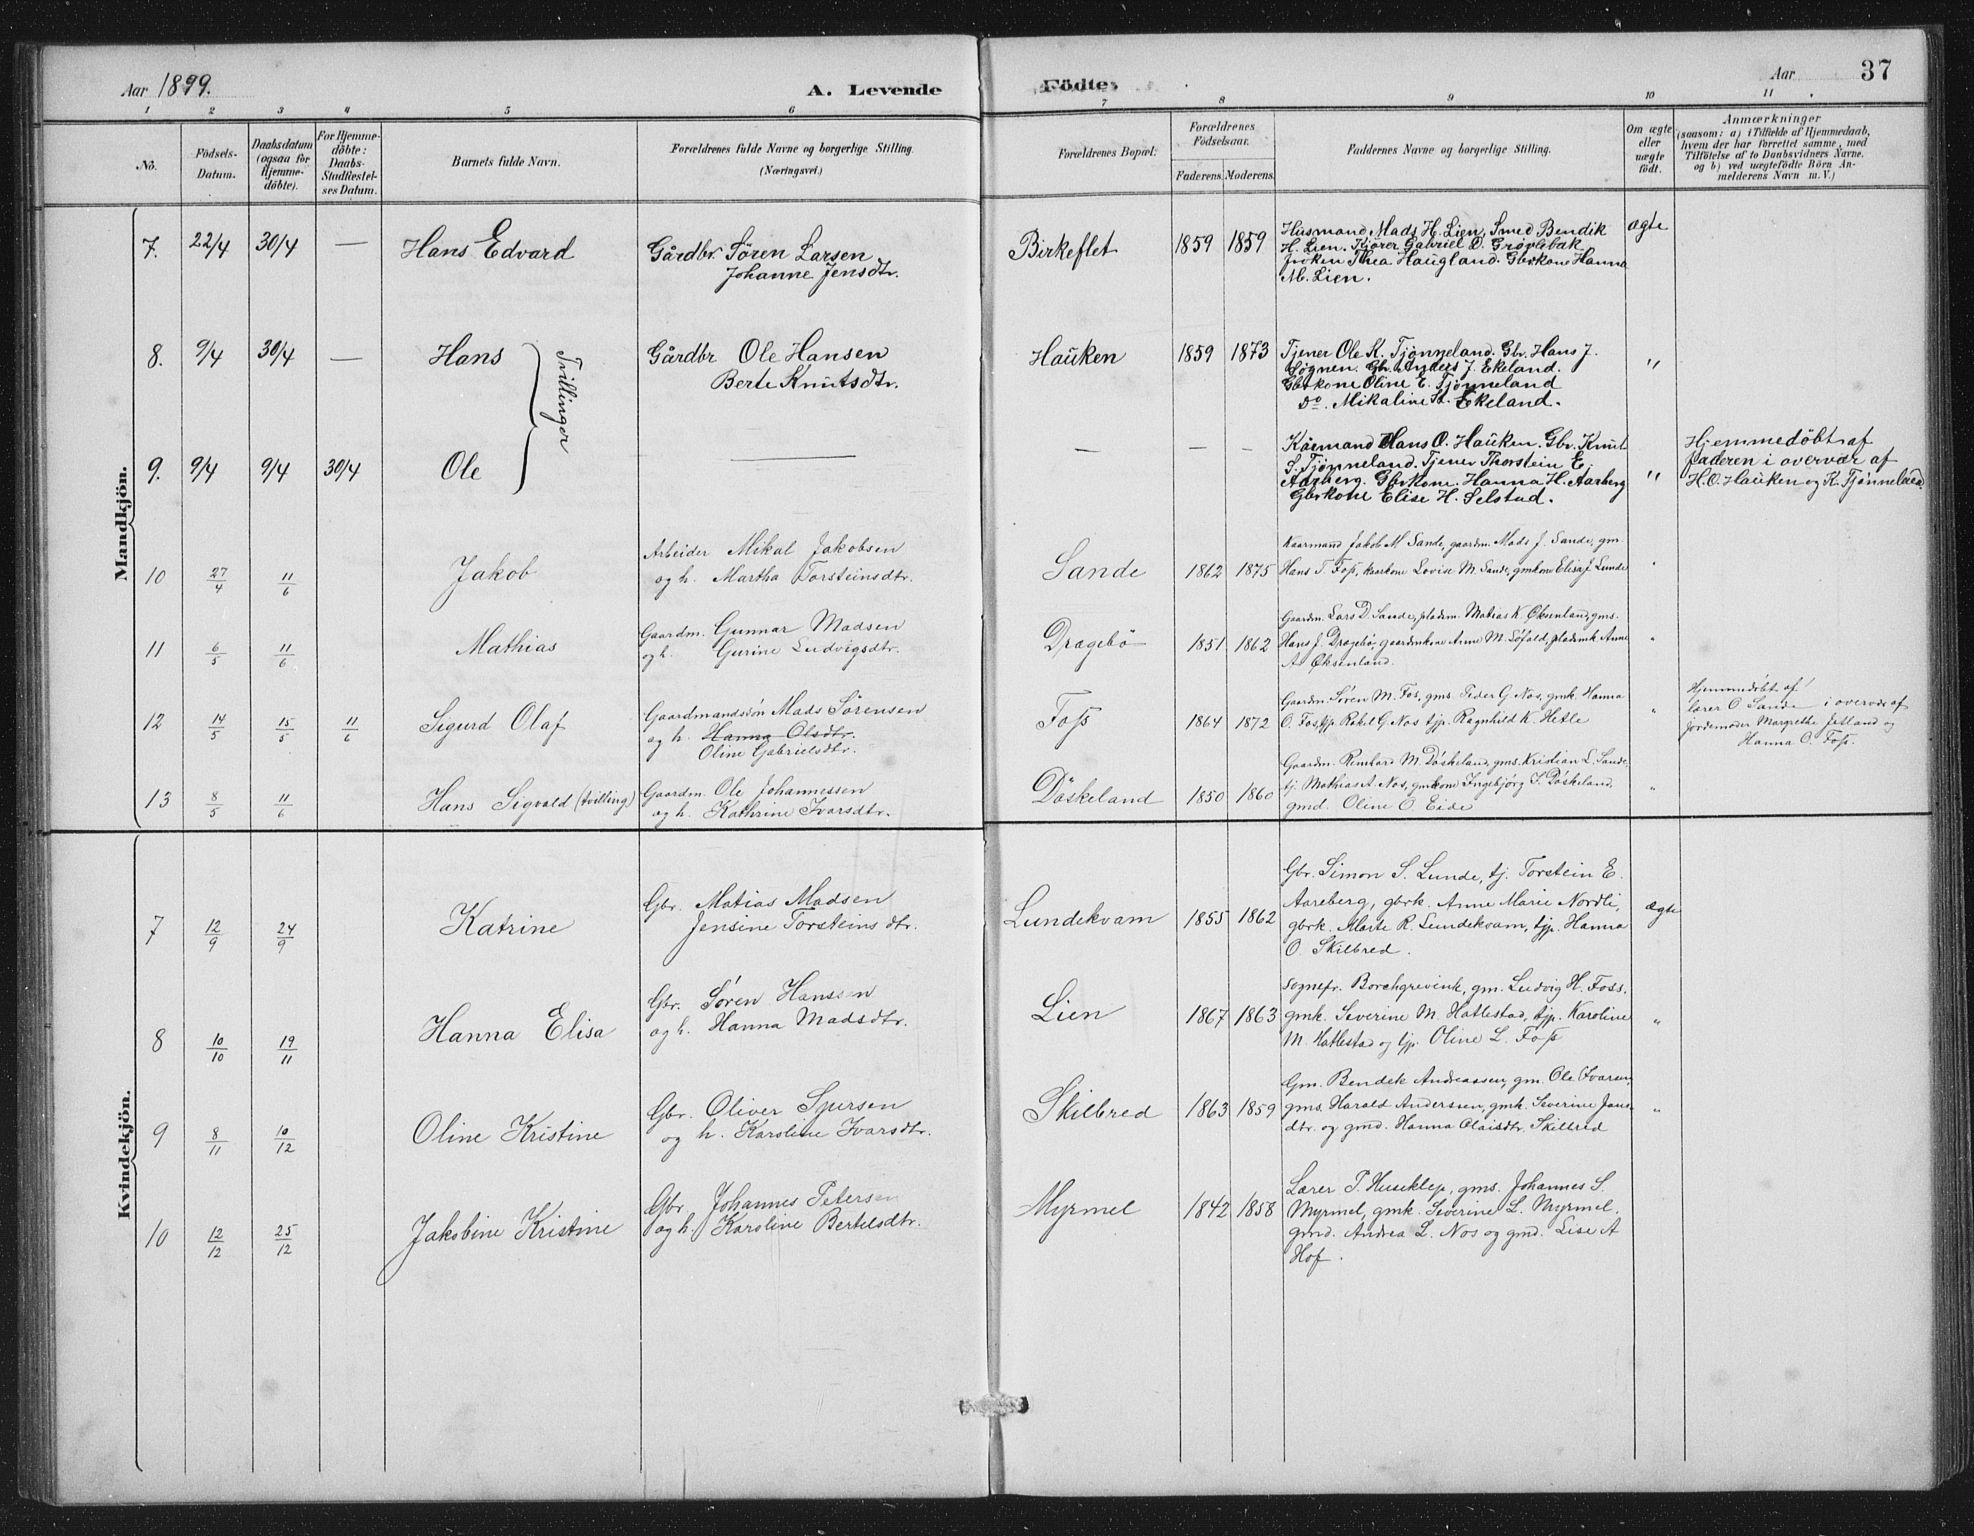 Aar 1899.
A. Levende
Födte.
Aar
37
1 2 3 4 5 6 7 8 9 10 11
No.
Födsels-
Datum.
Daabsdatum
(ogsaa for
Hjemme-
döbte).
For Hjemme-
döbte:
Daabs-
Stadfæstel-
ses Datum.
Barnets fulde Navn.
Forældrenes fulde Navne og borgerlige Stilling.
(Næringsvei.)
Forældrenes Bopæl.
Forældrenes
Födselsaar.
Faderens. Moderens.
Faddernes Navne og borgerlige Stilling.
Om ægte
eller
uægte
födt.
Anmærkninger
(saasom: a) i Tilfælde af Hjemmedaab,
hvem der har forrettet samme, med
Tilföielse af to Daabsvidners Navne,
og b) ved uægtefödte Börn An-
melderens Navn m. V.)
Mandkjön.
7. 22/4 30/4 — Hans Edvard
Gårdbr. Søren Larsen
Johanne Jensdtr.
Birkeflet 1859 1859
Husmand Mads H. Lien, Smed Bendik
H. Lien. Kjører Gabriel D. Grøvlebak
Frøken Thea Haugland. Gbrkone Hanna
M. Lien.
ægte
8. 9/4 30/4 — Hans
Trillinger
Gårdbr Ole Hansen
Berte Knutsdtr.
Hauken 1859 1873
Tjener Ole K. Tjønneland. Gbr. Hans J.
Søgnen. Gbr. Anders J. Ekeland.
Gbrkone Oline E. Tjønneland
Do. Mikaline St. Ekeland.
"
9. 9/4 9/4 30/4 Ole
— — —
Kårmand Hans O. Hauken. Gbr. Knut
S. Tjønneland. Tjener Thorstein E.
Aarberg. Gbrkone Hanna H. Aarberg
Gbrkone Elise H. Selstad.
"
Hjemmedøbt af
faderen i overvær af
H. O. Hauken og K. Tjønneland.
10 27/4 11/6 Jakob
Arbeider Mikal Jakobsen
og h. Martha Torsteinsdtr.
Sande 1862 1875
Kaarmand Jakob M Sande, gaardm. Mads J. Sande, gm.
Hans T. Foss, kaarkone Lovise M. Sande, gmkone Elisa J. Lunde
"
11 6/5 11/6 Mathias
Gaardm. Gunnar Madsen
og h. Gurine Ludvigsdtr.
Dragebø 1851 1862
Gaardm. Lars D. Sande, pladsm. Matias K. Øksenland, gms.
Hans J. Dragebø, gaardmkone Anne M. Løfald, pladsmk Anne
A. Øksenland.
"
12 14/5 15/5 11/6 Sigurd Olaf
Gaardmandssøn Mads Sørensen
og h. Hanna Olsdtr.
Oline Gabrielsdtr.
Foss 1864 1872
Gaardm. Søren M. Fos, gms. Peder G. Nos, gmk. Hanna
O. Fos, tjp. Rakel G Nos tjp. Ragnhild K. Hetle
"
Hjemmedøbt af
lærer O Sande i overvær af
jordemoder Margrethe Jetland og
Hanna O. Foss.
13 8/5 11/6 Hans Sigvald (tvilling)
Gaardm. Ole Johannessen
og h. Kathrine Ivarsdtr.
Døskeland 1850 1860
Gaardm. Reinhard M. Døskeland, gms. Kristian L. Sande,
tj. Mathias A. Nos, gmkone Ingebjørg I. Døskeland,
gmd. Oline O. Eide
"
Kvindekjön.
7 12/9 24/9 Katrine
Gbr. Matias Madsen
Jensine Torsteinsdtr.
Lundekvam 1855 1862
Gbr. Simon S. Lunde, tj. Torstein E.
Aareberg, gbrk. Anne Marie Nordli,
gbrk. Marte R. Lundekvam, tjp. Hanna
O. Skilbred.
ægte
8 10/10 19/11 Hanna Elisa
Gbr. Søren Hanssen
og h. Hanna Madsdtr.
Lien 1867 1863
Sognepr. Borchgrevink, gm. Ludvig H. Foss.
gmk. Severine M. Hatlestad, tjp. Karoline
M. Hatlestad og tjp. Oline L. Foss
"
9 8/11 10/12 Oline Kristine
Gbr. Oliver Sjursen
og h. Karoline Ivarsdtr.
Skilbred 1863 1859
Gm. Bendik Andreassen, gm. Ole Ivarsen,
gms. Harald Anderssen, gmk. Severine Jans-
dtr. og gmd. Hanna Olaisdtr. Skilbred
"
10 12/12 25/12 Jakobine Kristine
Gbr. Johannes Petersen
og h. Karoline Bertelsdtr.
Myrmel 1842 1858
Lærer P. Huseklep, gms. Johannes S.
Myrmel, gmk. Severine L. Myrmel.
gmd. Andrea L. Nos og gmd. Lise A
Hof.